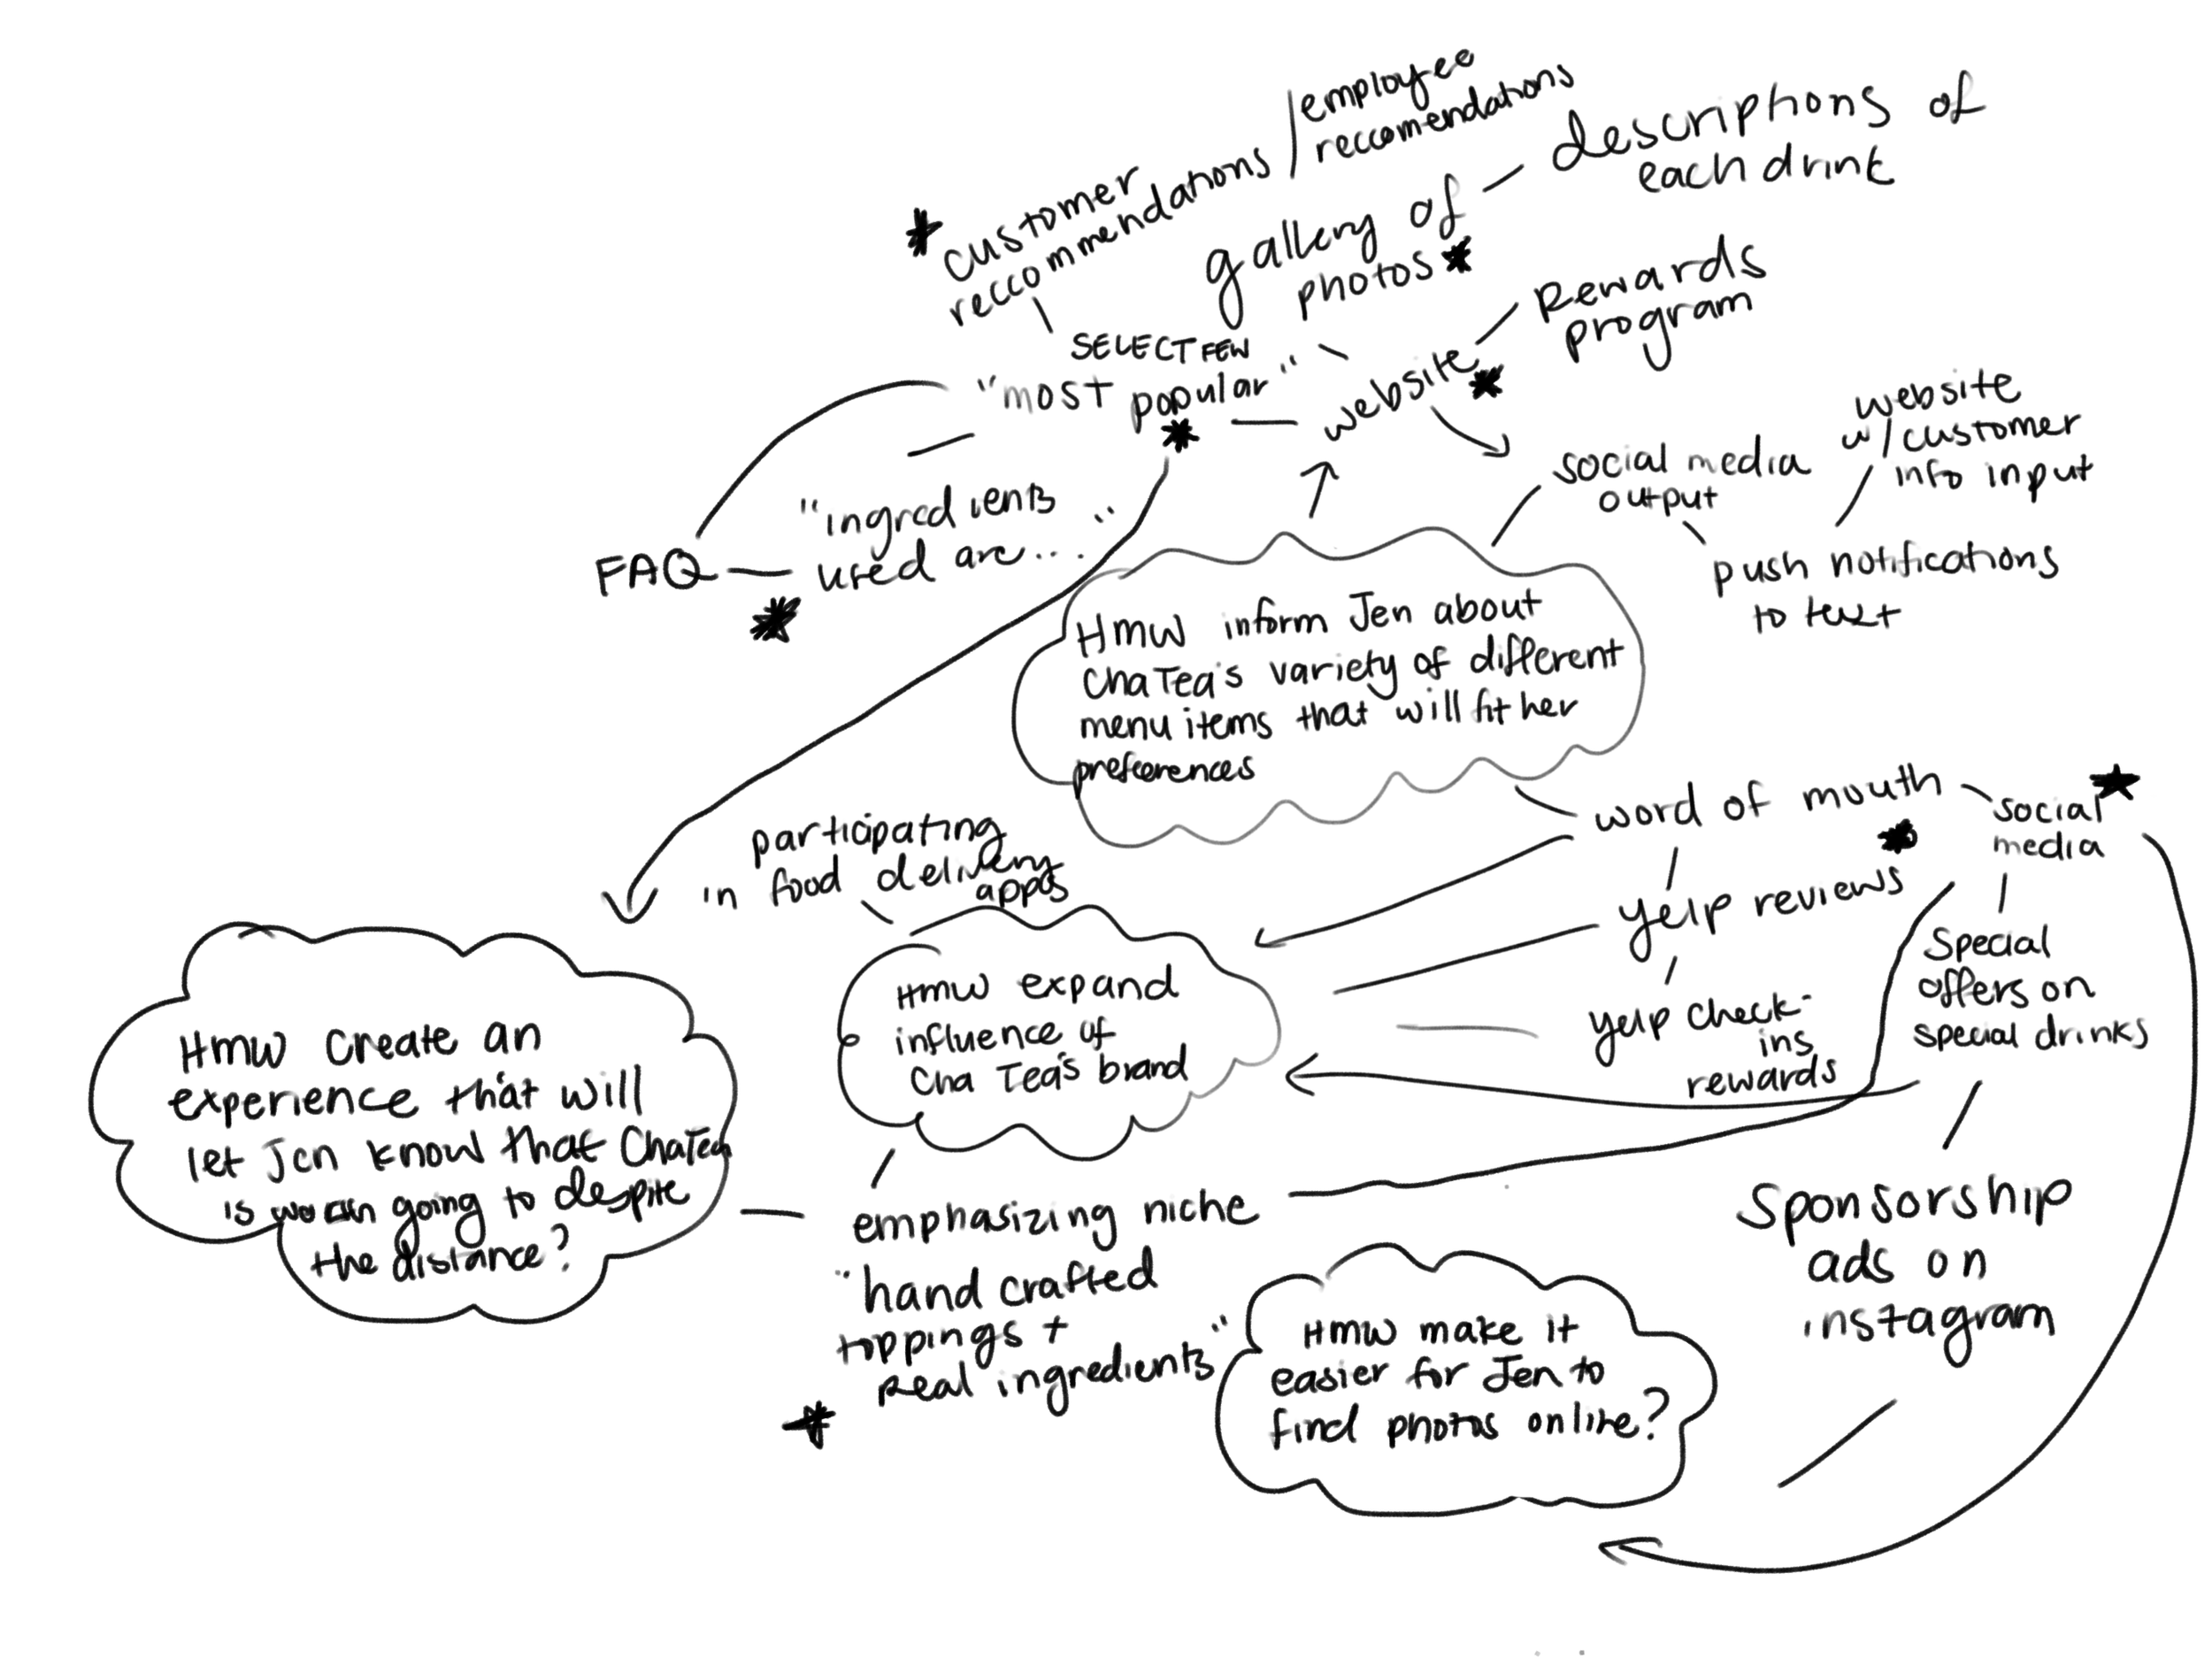 employee
reccomendations
customer
reccommendations /
descriptions of
each drink
gallery of
photos
Rewards
program
SELECT FEW
"most popular"
website
website
w/customer
info input
social media
output
push notifications
to text
"ingredients
used are... "
FAQ
HMW inform Jen about
ChaTea's variety of different
menu items that will fit her
preferences
word of mouth
social
media
yelp reviews
yelp check-
ins
rewards
Special
offers on
special drinks
Sponsorship
ads on
instagram
participating
in food delivery
apps
HMW expand
influence of
Cha Tea's brand
HMW create an
experience that will
let Jen know that ChaTea
is going to despite
the distance?
emphasizing niche
"hand crafted
toppings +
Real ingredients"
HMW make it
easier for Jen to
find photos online?